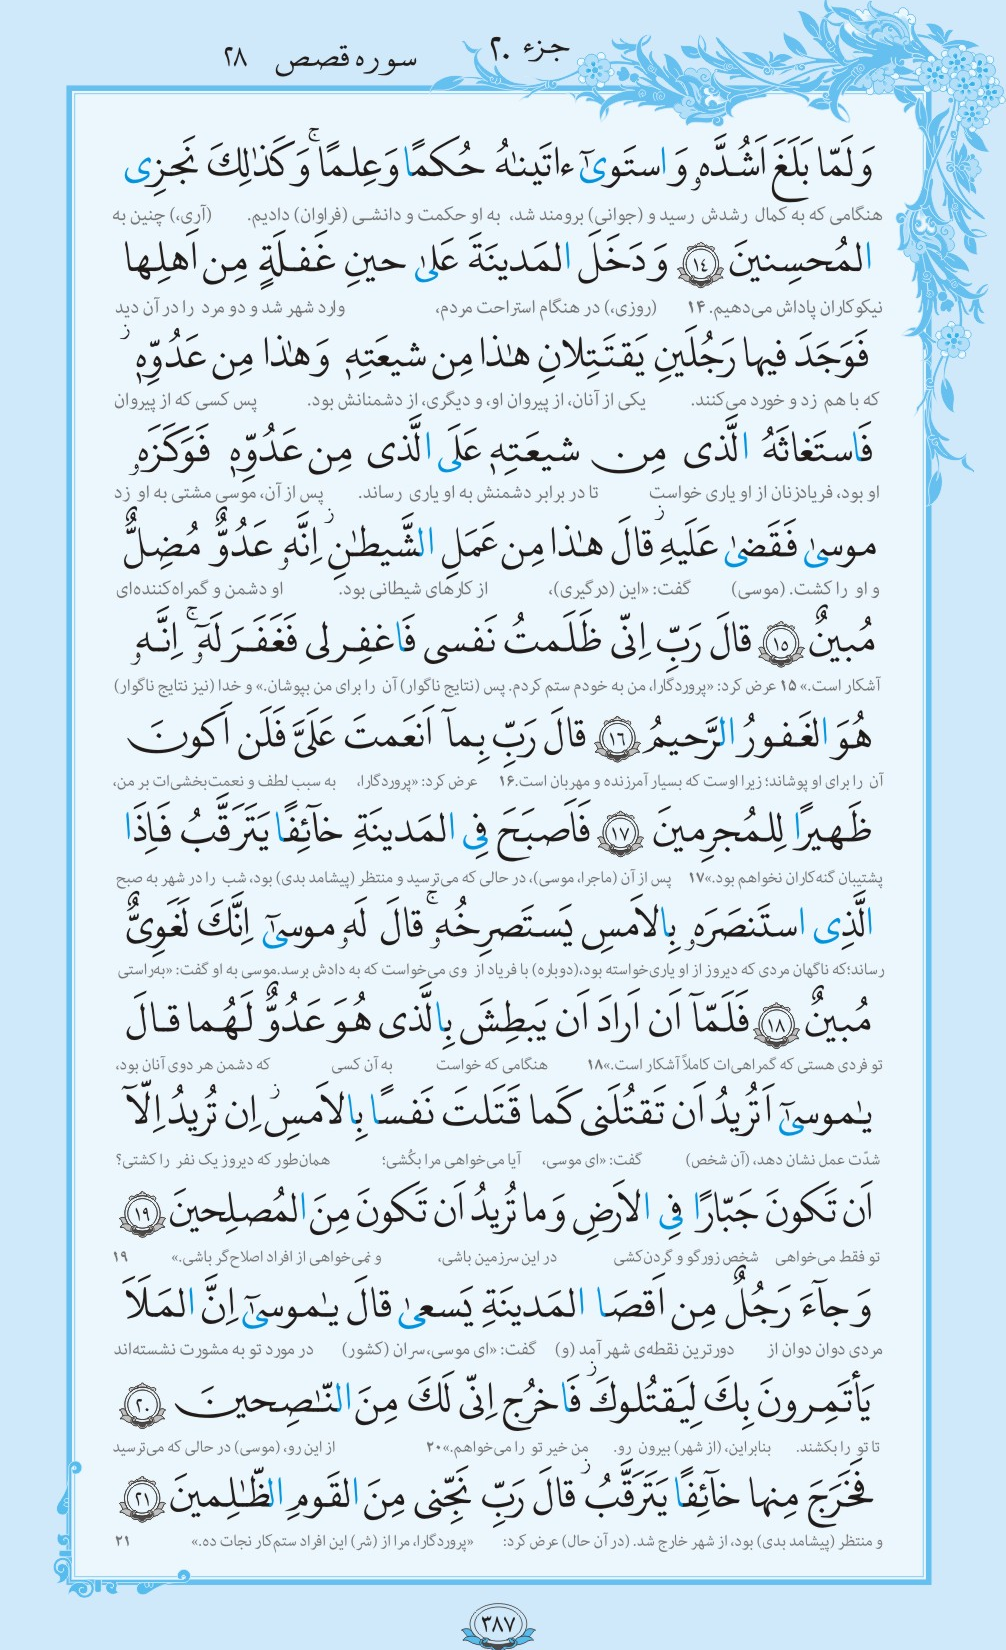 جزء ۲۰
سوره قصص ۲۸
وَ لَمّا بَلَغَ اَشُدَّهٗ وَ استَوىٰٓ ءاتَینٰهُ حُکمًا وَ عِلمًا ۚ وَ کَذٰلِكَ نَجزِی
هنگامی که به کمال رشدش رسید و (جوانی) برومند شد، به او حکمت و دانشی (فراوان) دادیم. (آری،) چنین به
المُحسِنینَ ﴿١٤﴾ وَ دَخَلَ المَدینَةَ عَلیٰ حینِ غَفلَةٍ مِن اَهلِها
نیکوکاران پاداش می‌دهیم. ۱۴ (روزی،) در هنگام استراحت مردم، وارد شهر شد و دو مرد را در آن دید
فَوَجَدَ فیها رَجُلَینِ یَقتَتِلانِ هٰذا مِن شیعَتِهٖ وَ هٰذا مِن عَدُوِّهٖ ؗ
که با هم زد و خورد می‌کنند. یکی از آنان، از پیروان او، و دیگری، از دشمنانش بود. پس کسی که از پیروان
فَاستَغاثَهُ الَّذی مِن شیعَتِهٖ عَلَی الَّذی مِن عَدُوِّهٖ فَوَکَزَهٗ
او بود، فریادزنان از او یاری خواست تا در برابر دشمنش به او یاری رساند. پس از آن، موسی مشتی به او زد
موسیٰ فَقَضیٰ عَلَیهِ ؗ قالَ هٰذا مِن عَمَلِ الشَّیطٰنِ ؗ اِنَّهٗ عَدُوٌّ مُضِلٌّ
و او را کشت. (موسی) گفت: «این (درگیری)، از کارهای شیطانی بود. او دشمن و گمراه‌کننده‌ای
مُبینٌ ﴿١٥﴾ قالَ رَبِّ اِنّی ظَلَمتُ نَفسی فَاغفِر لی فَغَفَرَ لَهٗٓ ۚ اِنَّهٗ
آشکار است.» ۱۵ عرض کرد: «پروردگارا، من به خودم ستم کردم. پس (نتایج ناگوار) آن را برای من بپوشان.» و خدا (نیز نتایج ناگوار)
هُوَ الغَفورُ الرَّحیمُ ﴿١٦﴾ قالَ رَبِّ بِمآ اَنعَمتَ عَلَیَّ فَلَن اَکونَ
آن را برای او پوشاند؛ زیرا اوست که بسیار آمرزنده و مهربان است. ۱۶ عرض کرد: «پروردگارا، به سبب لطف و نعمت‌بخشی‌ات بر من،
ظَهیرًا لِلمُجرِمینَ ﴿١٧﴾ فَاَصبَحَ فِی المَدینَةِ خآئِفًا یَتَرَقَّبُ فَاِذَا
پشتیبان گنه‌کاران نخواهم بود.» ۱۷ پس از آن (ماجرا، موسی)، در حالی که می‌ترسید و منتظر (پیشامد بدی) بود، شب را در شهر به صبح
الَّذِی استَنصَرَهٗ بِالاَمسِ یَستَصرِخُهٗ ۚ قالَ لَهٗ موسیٰٓ اِنَّكَ لَغَوِیٌّ
رساند؛ که ناگهان مردی که دیروز از او یاری خواسته بود، (دوباره) با فریاد از وی می‌خواست که به دادش برسد. موسی به او گفت: «به‌راستی
مُبینٌ ﴿١٨﴾ فَلَمّآ اَن اَرادَ اَن یَبطِشَ بِالَّذی هُوَ عَدُوٌّ لَهُما قالَ
تو فردی هستی که گمراهی‌ات کاملاً آشکار است.» ۱۸ هنگامی که خواست به آن کسی که دشمن هر دوی آنان بود،
یٰموسیٰٓ اَتُریدُ اَن تَقتُلَنی کَما قَتَلتَ نَفسًا بِالاَمسِ ؗ اِن تُریدُ اِلّآ
شدّت عمل نشان دهد، (آن شخص) گفت: «ای موسی، آیا می‌خواهی مرا بکُشی؛ همان‌طور که دیروز یک نفر را کشتی؟
اَن تَکونَ جَبّارًا فِی الاَرضِ وَ ما تُریدُ اَن تَکونَ مِنَ المُصلِحینَ ﴿١٩﴾
تو فقط می‌خواهی شخص زورگو و گردن‌کشی در این سرزمین باشی، و نمی‌خواهی از افراد اصلاح‌گر باشی.» ۱۹
وَ جآءَ رَجُلٌ مِن اَقصَا المَدینَةِ یَسعیٰ قالَ یٰموسیٰٓ اِنَّ المَلَاَ
مردی دوان دوان از دورترین نقطه‌ی شهر آمد (و) گفت: «ای موسی، سران (کشور) در مورد تو به مشورت نشسته‌اند
یَأتَمِرونَ بِكَ لِیَقتُلوكَ ؗ فَاخرُج اِنّی لَكَ مِنَ النّٰصِحینَ ﴿٢٠﴾
تا تو را بکشند. بنابراین، (از شهر) بیرون رو. من خیر تو را می‌خواهم.» ۲۰ از این رو، (موسی) در حالی که می‌ترسید
فَخَرَجَ مِنها خآئِفًا یَتَرَقَّبُ ؗ قالَ رَبِّ نَجِّنی مِنَ القَومِ الظّٰلِمینَ ﴿٢١﴾
و منتظر (پیشامد بدی) بود، از شهر خارج شد. (در آن حال) عرض کرد: «پروردگارا، مرا از (شر) این افراد ستم‌کار نجات ده.» ۲۱
۳۸۷